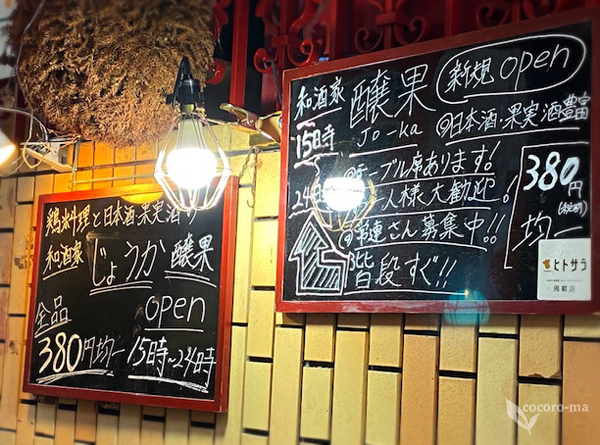 鶏料理と日本酒・果実酒
和酒家 じょうか 醸果
全品 open
380円均一 15時〜24時
和酒家 醸果 新規open
Jo-ka
日本酒・果実酒豊富
15時
テーブル席あります!
人様大歓迎!
常連さん募集中!!
階段すぐ!!
380円
均一
ヒトサラ
掲載店
cocoro-ma